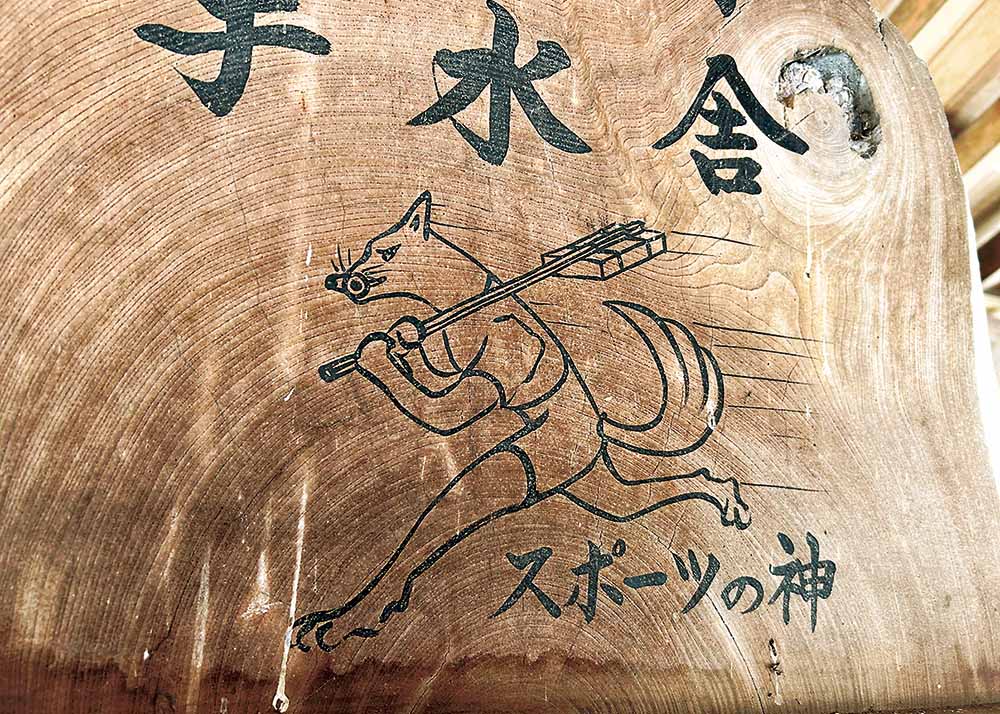 手水舎
スポーツの神